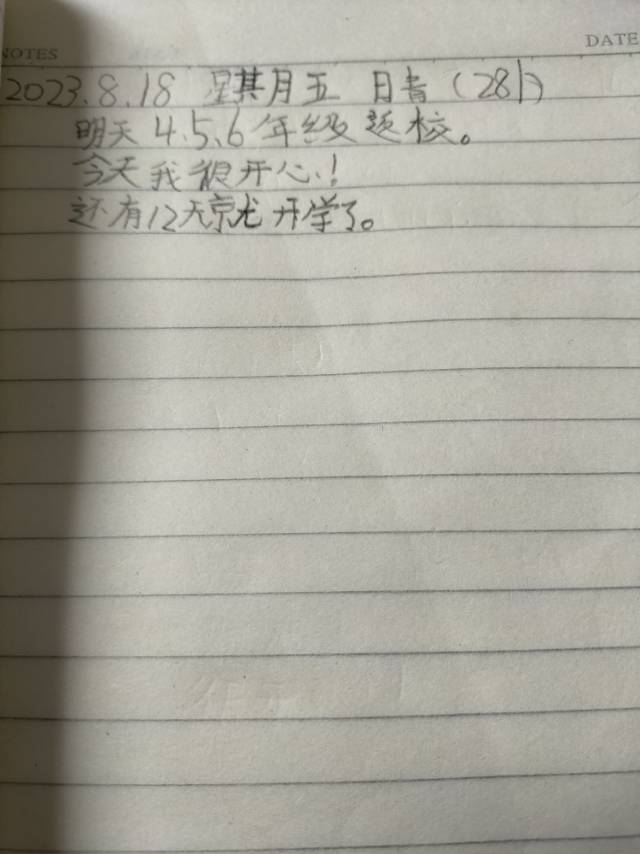 NOTES
DATE
2023.8.18 星其月五 日書(281)
明天4、5、6年级返校。
今天我很开心!
还有12天京尤开学了。